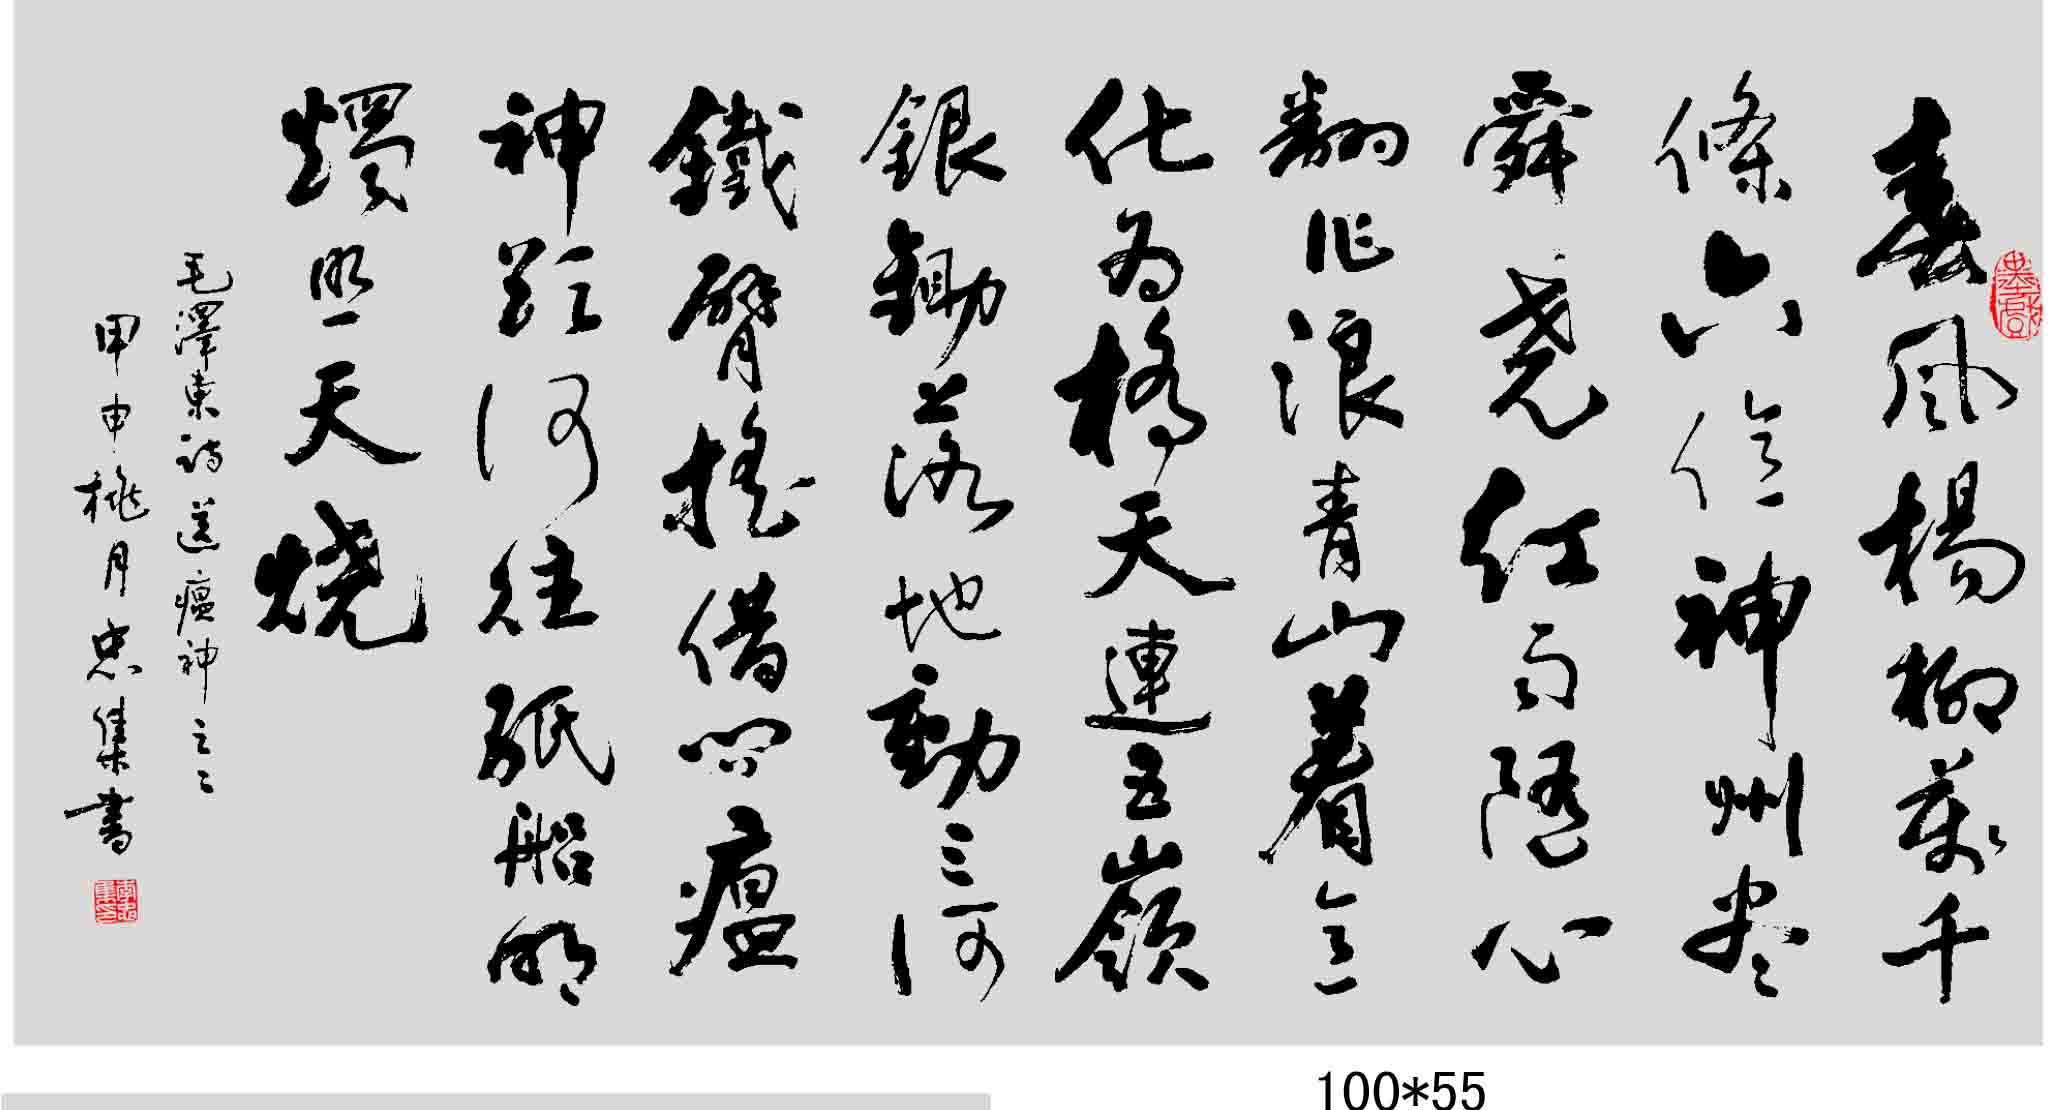 春風楊柳萬千
條六億神州盡
舜堯紅雨隨心
翻作浪青山着意
化為橋天連五嶺
銀鋤落地動三河
鐵臂搖借問瘟
神欲何往紙船明
燭照天燒
毛澤東詩送瘟神之二
甲申桃月忠集書
100*55